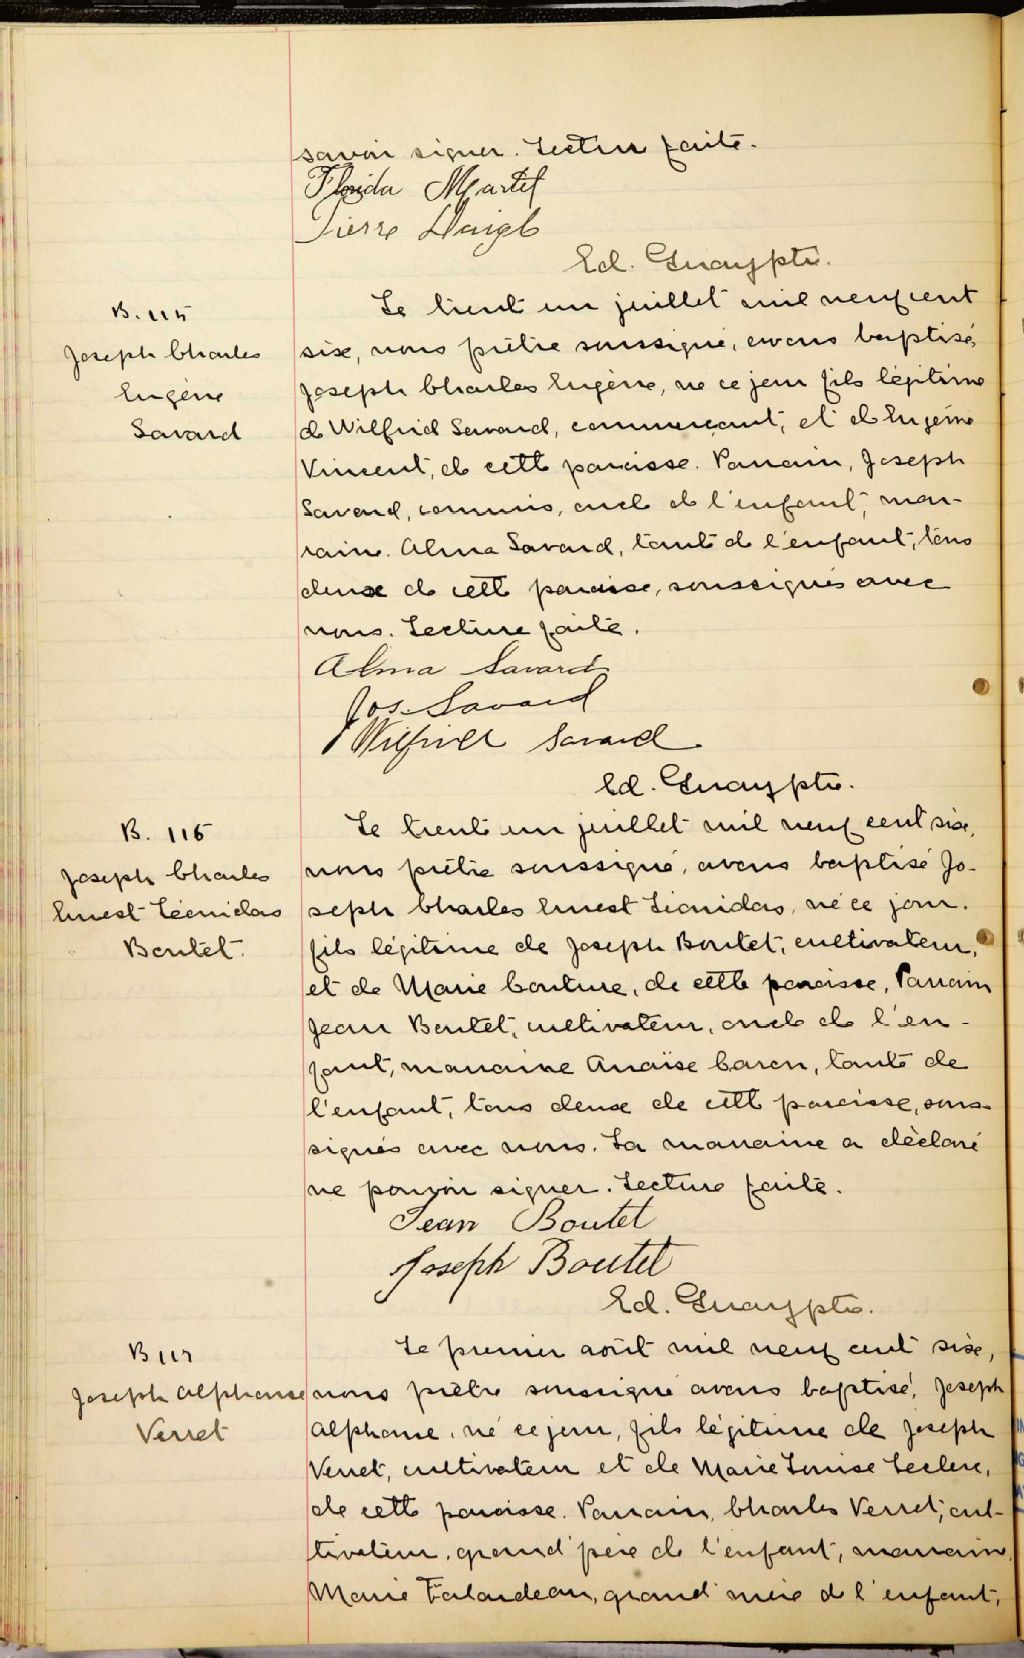 savoir signer. Lecture faite.
Florida Martel
Pierre Daigle
Ed. Guay ptre.
B. 115
Joseph Charles
Eugène
Savard
Le trent un juillet mil neuf cent
six, nous prêtre soussigné, avons baptisé,
Joseph Charles Eugène, né ce jour fils légitime
de Wilfrid Savard, commerçant, et de Eugénie
Vincent, de cette paroisse. Parrain, Joseph
Savard, commis, oncle de l'enfant, mar-
raine. Alma Savard, tante de l'enfant, tous
deux de cette paroisse, soussignés avec
nous. Lecture faite.
Alma Savard
Jos. Savard
Wilfrid Savard
Ed. Guay ptre.
B. 116
Joseph Charles
Ernest Léonidas
Boutet.
Le trente un juillet mil neuf cent six,
nous prêtre soussigné, avons baptisé Jo-
seph Charles Ernest Léonidas, né ce jour.
fils légitime de Joseph Boutet, cultivateur,
et de Marie Couture, de cette paroisse, Parrain
Jean Boutet, cultivateur, oncle de l'en-
fant, marraine Anaïse Caron, tante de
l'enfant, tous deux de cette paroisse, sous-
signés avec nous. La marraine a déclaré
ne pouvoir signer. Lecture faite.
Jean Boutet
Joseph Boutet
Ed. Guay ptre.
B 117
Joseph Alphonse
Verret
Le premier août mil neuf cent six,
nous prêtre soussigné avons baptisé, Joseph
Alphonse, né ce jour, fils légitime de Joseph
Verret, cultivateur et de Marie Louise Leclerc,
de cette paroisse. Parrain, Charles Verret, cul-
tivateur, grand père de l'enfant, marraine,
Marie Falardeau, grand mère de l'enfant,